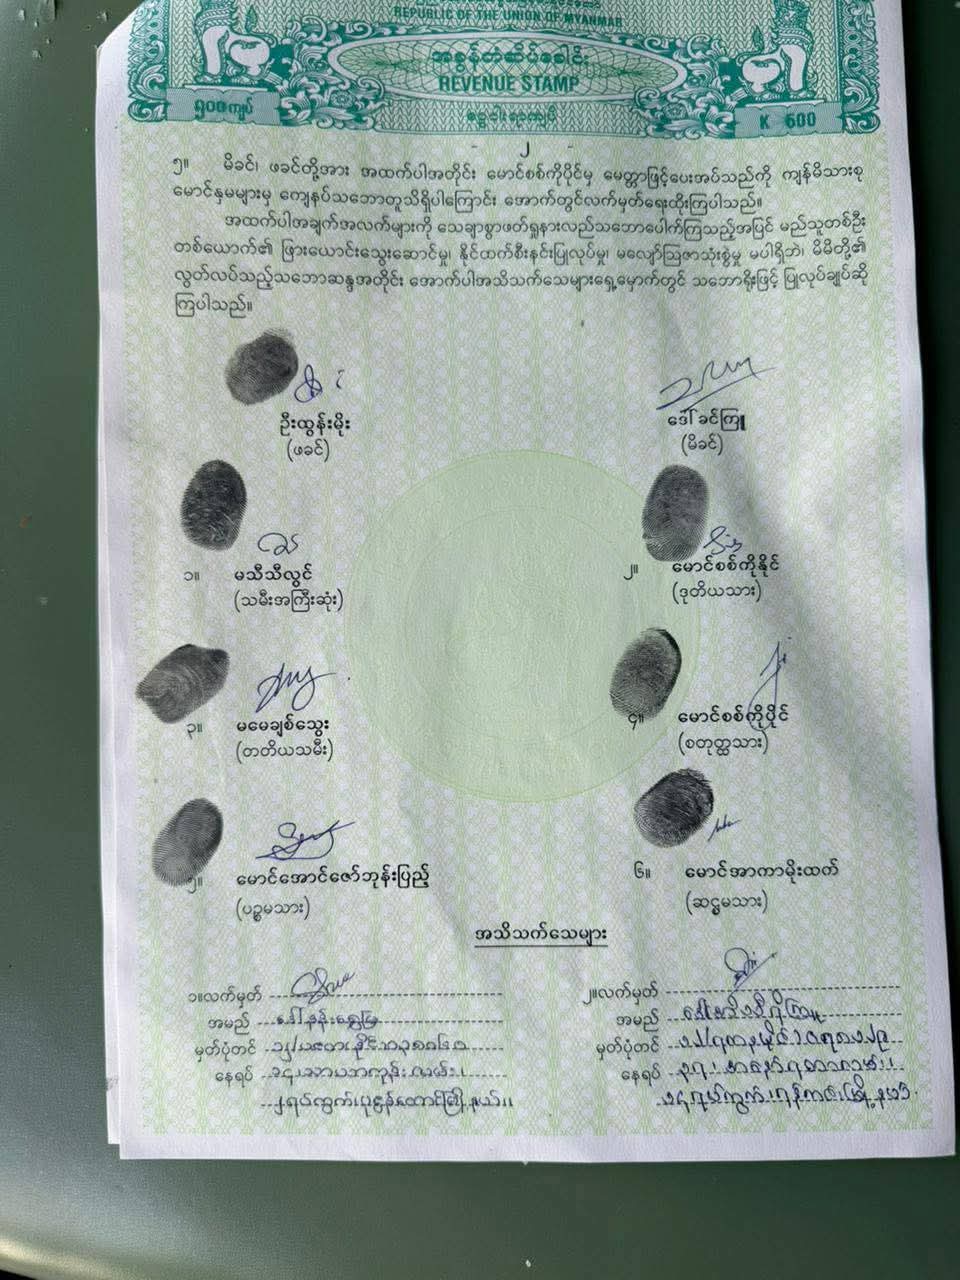 REPUBLIC OF THE UNION OF MYANMAR
အခွန်တံဆိပ်ခေါင်း
REVENUE STAMP
၅၀၀ကျပ်
K 500
- ၂ -
၅။ မိခင်၊ ဖခင်တို့အား အထက်ပါအတိုင်း မောင်စစ်ကိုပိုင်မှ မေတ္တာဖြင့်ပေးအပ်သည်ကို ကျန်မိသားစု
မောင်နှမများမှ ကျေနပ်သဘောတူသိရှိပါကြောင်း အောက်တွင်လက်မှတ်ရေးထိုးကြပါသည်။
အထက်ပါအချက်အလက်များကို သေချာစွာဖတ်ရှုနားလည်သဘောပေါက်ကြသည့်အပြင် မည်သူတစ်ဦး
တစ်ယောက်၏ ဖြားယောင်းသွေးဆောင်မှု၊ နိုင်ထက်စီးနင်းပြုလုပ်မှု၊ မလျော်ဩဇာသုံးစွဲမှု မပါရှိဘဲ၊ မိမိတို့၏
လွတ်လပ်သည့်သဘောဆန္ဒအတိုင်း အောက်ပါအသိသက်သေများရှေ့မှောက်တွင် သဘောရိုးဖြင့် ပြုလုပ်ချုပ်ဆို
ကြပါသည်။
ဦးထွန်းမိုး
(ဖခင်)
ဒေါ်ခင်ကြူ
(မိခင်)
၁။ မသီသီလွင်
(သမီးအကြီးဆုံး)
၂။ မောင်စစ်ကိုနိုင်
(ဒုတိယသား)
၃။ မမေချစ်သွေး
(တတိယသမီး)
၄။ မောင်စစ်ကိုပိုင်
(စတုတ္ထသား)
၅။ မောင်အောင်ဇော်ဘုန်းပြည့်
(ပဉ္စမသား)
၆။ မောင်အာကာမိုးထက်
(ဆဋ္ဌမသား)
အသိသက်သေများ
၁။လက်မှတ်
အမည် ဒေါ်နန်း
မှတ်ပုံတင်
နေရပ်
၂။လက်မှတ်
အမည်
မှတ်ပုံတင်
နေရပ်